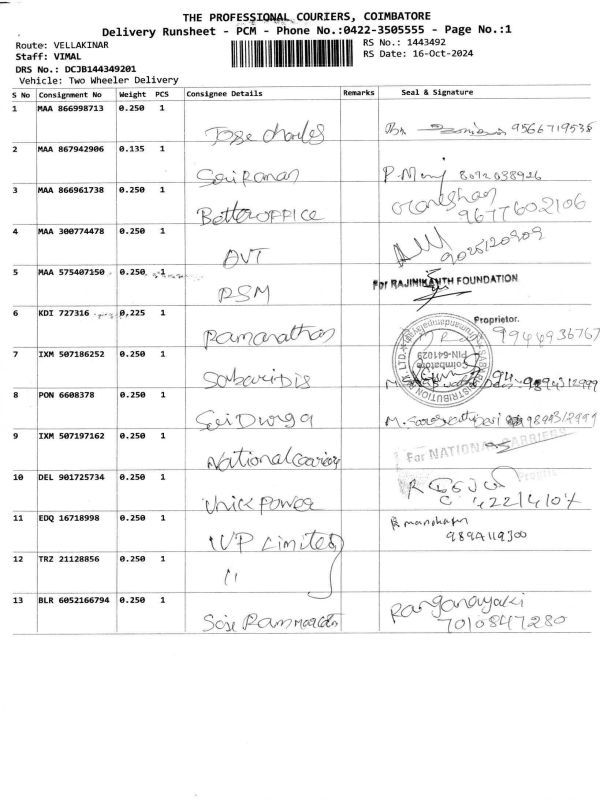 THE PROFESSIONAL COURIERS, COIMBATORE
Delivery Runsheet - PCM - Phone No.:0422-3505555 - Page No.:1
Route: VELLAKINAR
RS No.: 1443492
Staff: VIMAL
RS Date: 16-Oct-2024
DRS No.: DCJB144349201
Vehicle: Two Wheeler Delivery
S No Consignment No Weight PCS Consignee Details Remarks Seal & Signature
1 MAA 866998713 0.250 1
Jose charles 9566719538
2 MAA 867942906 0.135 1
Sri Raman P. 8072038926
3 MAA 866961738 0.250 1
Better OFFICE Ganeshan
9677602106
4 MAA 300774478 0.250 1
AVT 9025120909
5 MAA 575407150 0.250 1
RSM For RAJINIKANTH FOUNDATION
6 KDI 727316 0.225 1 Proprietor.
Ramanathan 9944936767
7 IXM 507186252 0.250 1
PIN-641029
Coimbatore
Sabari 9894312999
8 PON 6608378 0.250 1
Sri Durga M. 9894312999
9 IXM 507197162 0.250 1
National carriers For NATIONAL CARRIERS
10 DEL 901725734 0.250 1
Unick power 4221410
11 EDQ 16718998 0.250 1
UP Limited manohar
9894119300
12 TRZ 21128856 0.250 1
11
13 BLR 6052166794 0.250 1
Ram Ranganayaki
7010847280